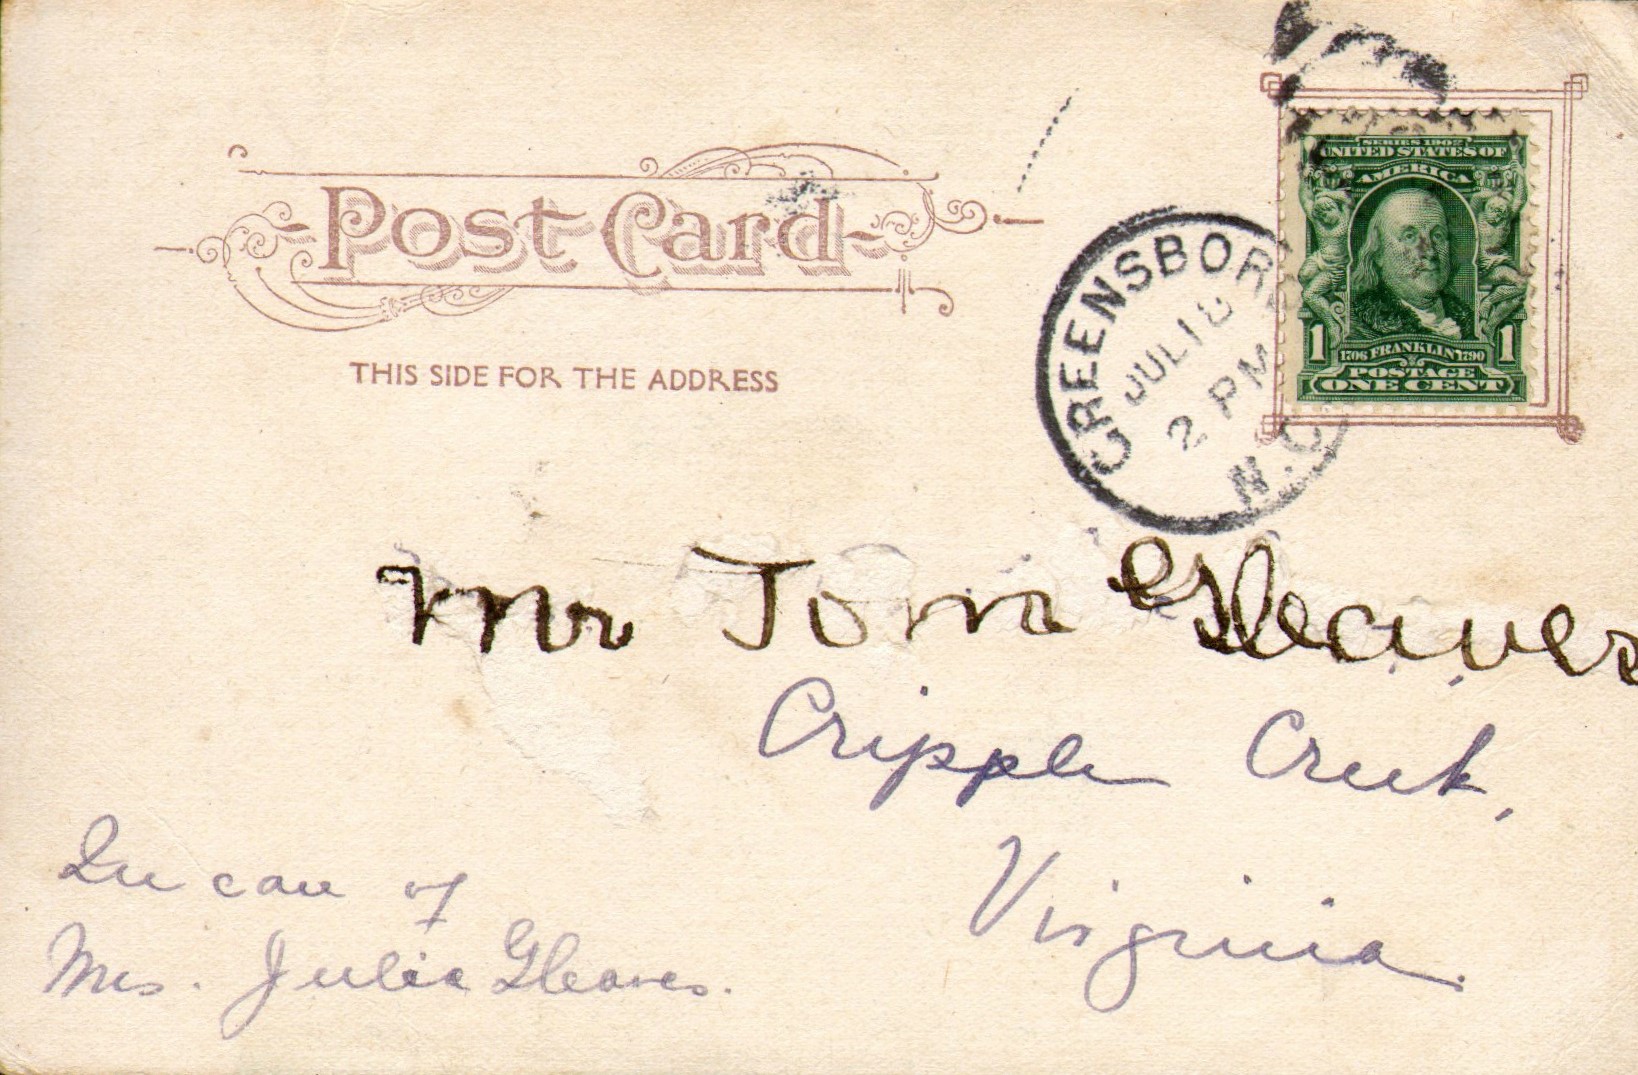 Post Card
THIS SIDE FOR THE ADDRESS
GREENSBORO
JUL 18
2 PM
N.C.
SERIES 1902
UNITED STATES OF
AMERICA
1 1706 FRANKLIN 1790 1
POSTAGE
ONE CENT
Mr Tom Gleaves
Cripple Creek,
Virginia.
In care of
Mrs. Julia Gleaves.